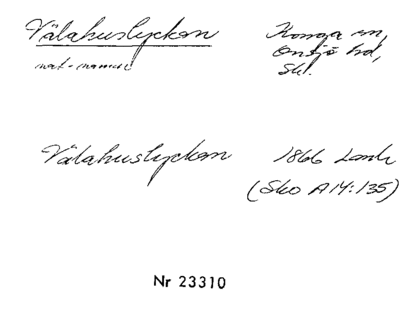 Välahuslyckan Konga sn,
nat.-namn Onsjö hd,
Sk.
Välahuslyckan 1866 Lantm
(Sko A14:135)
Nr 23310